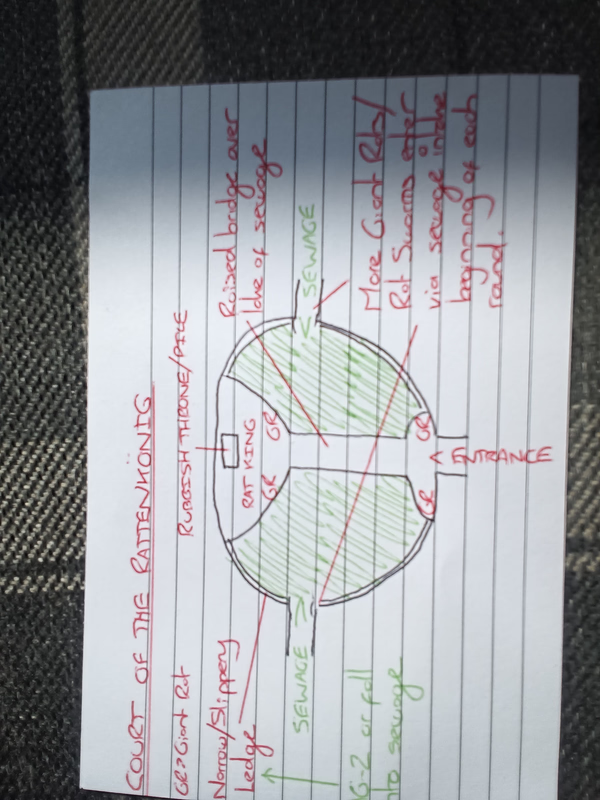 COURT OF THE RATTENKÖNIG
GR=Giant Rat
RUBBISH THRONE/PILE
Narrow/Slippery
Ledge
Raised bridge over
lake of sewage
RAT KING
GR
GR
SEWAGE >
< SEWAGE
GR
GR
^
ENTRANCE
More Giant Rats/
Rat Swarms enter
via sewage intake
beginning of each
round.
or fall
into sewage